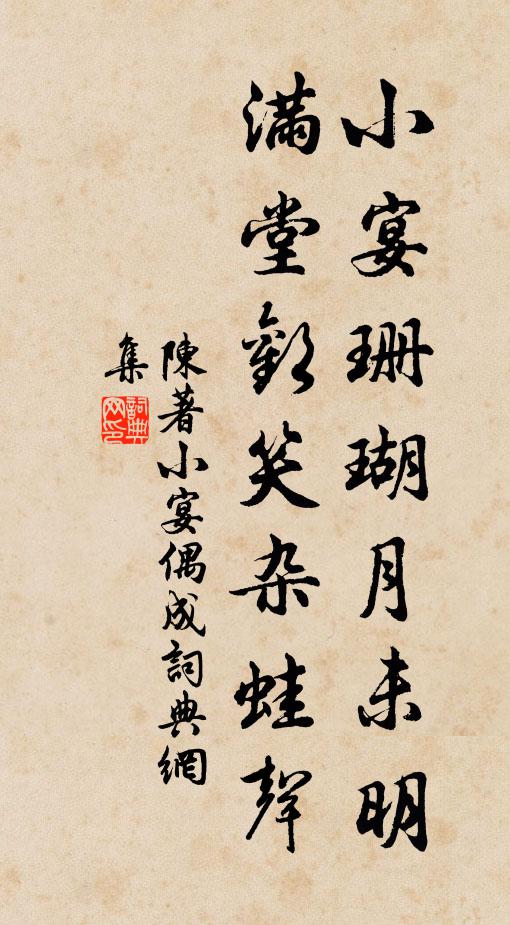 小宴珊瑚月未明
滿堂歡笑杂蛙聲
陳著小宴偶成詞典網
集
詞典
网印